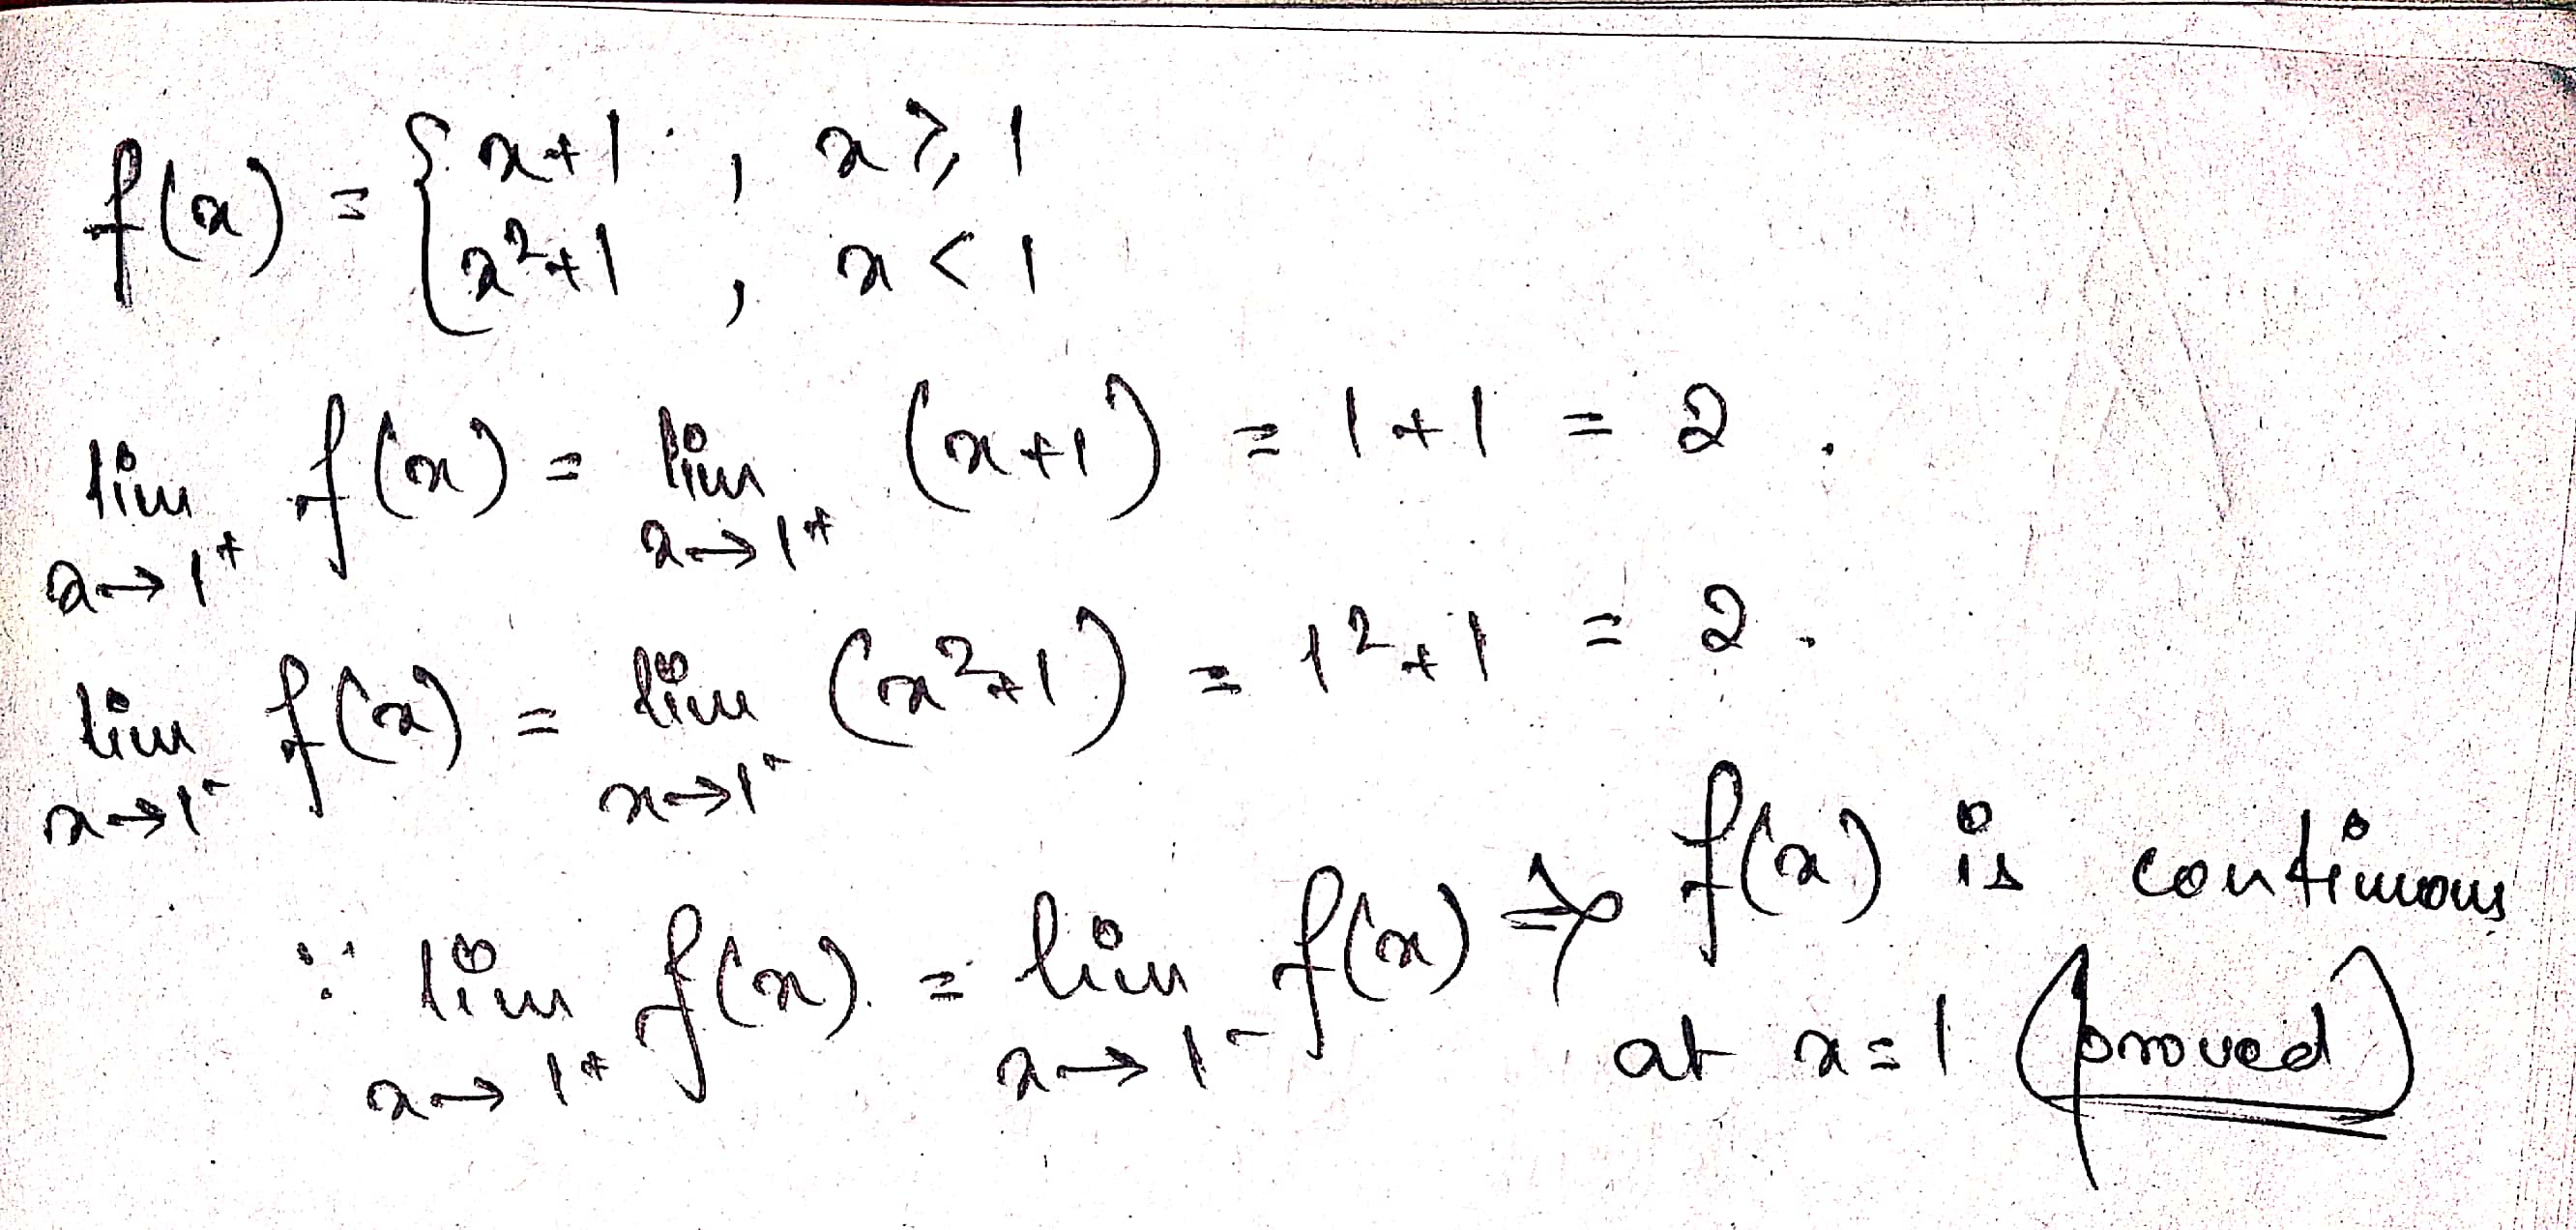 f(x) = { x+1 , x ≥ 1
x²+1 , x < 1
lim x→1⁺ f(x) = lim x→1⁺ (x+1) = 1+1 = 2 .
lim x→1⁻ f(x) = lim x→1⁻ (x²+1) = 1²+1 = 2 .
∵ lim x→1⁺ f(x) = lim x→1⁻ f(x) ⇒ f(x) is continuous
at x=1 (proved)